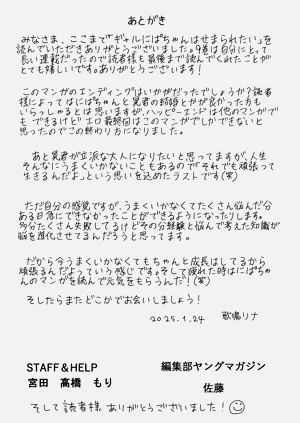 あとがき
みなさま、ここまで『ギャルにぱちゃんはせまられたい』を
読んでいただきありがとうございました。9巻は自分にとって
長い連載だったので読者様も最後まで読んでくれたことが
とても嬉しいです。ありがとうございます!
このマンガのエンディングはいかがだったでしょうか?読者
様によってはにぱちゃんと晃君の結婚とかが良かった方も
いらっしゃるとは思いますが、ハッピーエンドは他のマンガで
もできるけどエロ最終回はこのマンガでしかできないと
思ったのでこの終わり方になりました。
あと晃君が立派な大人になりたいと思ってますが、人生
そんなにうまくいかないこともあるので「それでも頑張って
生きるんだよ」という思いを込めたラストです(笑)
ただ自分の感覚ですが、うまくいかなくてたくさん悩んだ分
ある日急にできなかったことができるようになったりします。
多分たくさん失敗してるけどその分経験と悩んで考えた知識が
脳を進化させてるんだろうと思ってます。
だから今うまくいかなくてもちゃんと成長はしてるから
頑張るんだよっていう感じです。そして疲れた時はにぱちゃ
んのマンガを読んで元気をもらうんだ!(笑)
そしたらまたどこかでお会いしましょう!
2025.1.24 歌鳴リナ
STAFF&HELP
宮田 高橋 もり
編集部ヤングマガジン
佐藤
そして読者様ありがとうございました!